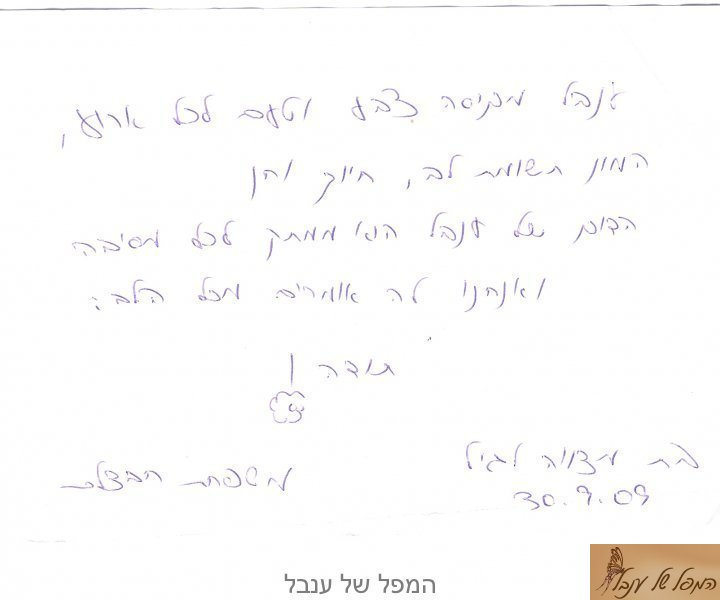 ענבל מכניסה צבע וטעם לכל ארוע,
המון תשומת לב, חיוך וחן
הדוכן של ענבל הוא ממתק לכל מסיבה
ואנחנו לה אומרים מכל הלב:
תודה!
בת מצווה לגיל
30.9.09
משפחת חבצלת
המפל של ענבל
המפל של ענבל